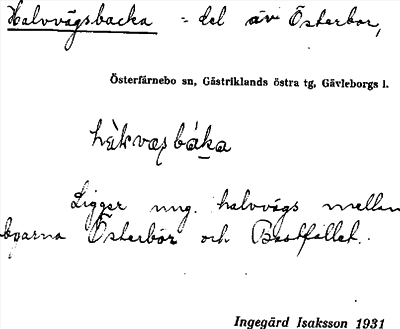 Halvvägsbacka = del av Österbor,
Österfärnebo sn, Gästriklands östra tg, Gävleborgs l.
Ligger ung. halvvägs mellan
byarna Österbor och Bastfallet.
Ingegärd Isaksson 1931